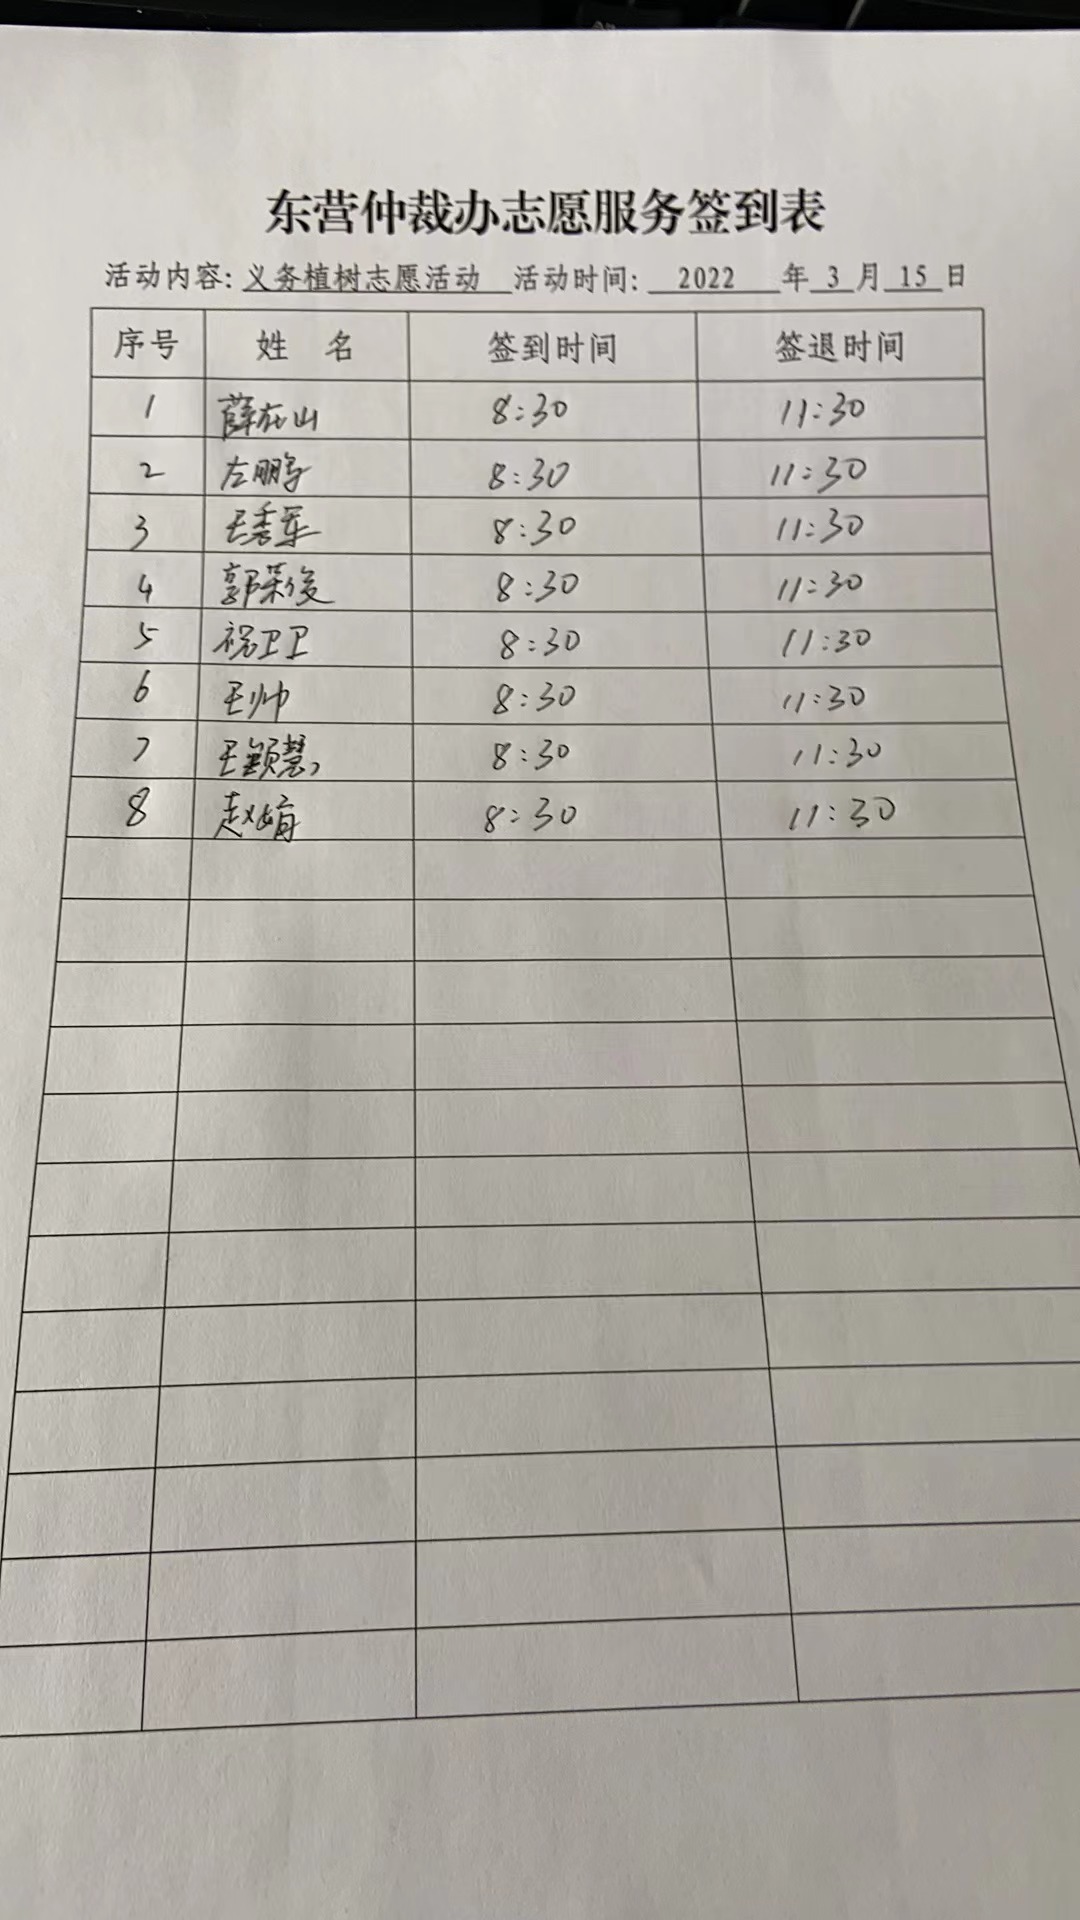 东营仲裁办志愿服务签到表
活动内容: 义务植树志愿活动 活动时间: 2022 年 3 月 15 日
序号 姓 名 签到时间 签退时间
1 薛在山 8:30 11:30
2 左鹏 8:30 11:30
3 王秀军 8:30 11:30
4 郭荣俊 8:30 11:30
5 祝卫卫 8:30 11:30
6 王帅 8:30 11:30
7 王颖慧 8:30 11:30
8 赵婧 8:30 11:30